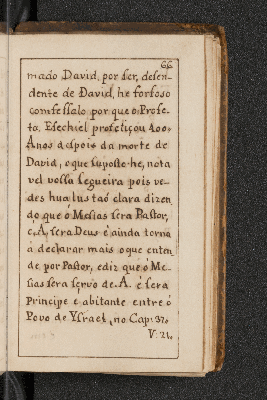 66
mado David, por ser, desen-
dente de David, he forsoso
comfessalo por que o Profe-
ta, Esechiel profetiçou 400
Anos despois da morte de
David, o que suposte-he, nota
vel vossa segueira pois ve-
des hua lus taó clara dizen
do que ó Mesias sera Pastor,
e, A, sera Deus é ainda torna
a declarar mais o que enten
de por Pastor, e diz que ó Me-
sias sera servo de A. é sera
Principe e abitante entre ó
Povo de Ysrael, no Cap: 37.
V: 24.